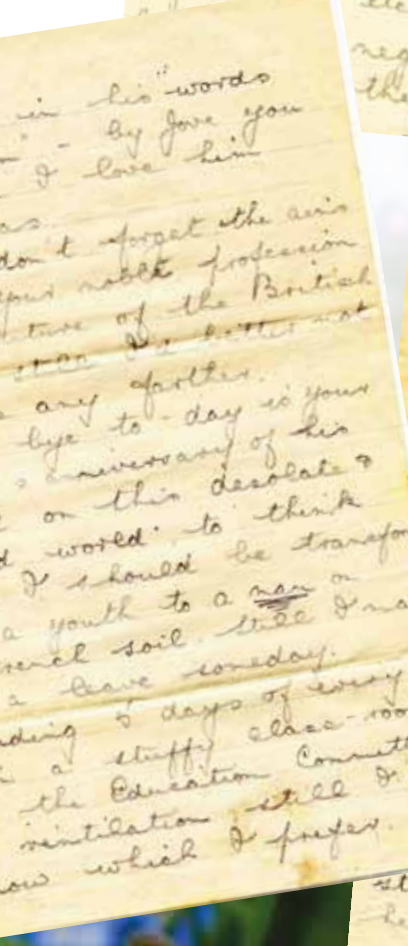 in his "words
" - by Jove you
I love him
as.
don't forget the airs
your noble profession
ture of the British
still I'd better not
any farther.
bye to-day is your
anniversary of his
on this desolate &
world to think
I should be transfor
a youth to a man on
rench soil. Still I
a leave someday.
ding 5 days of every
a stuffy class-roo
the Education Committ
ventilation still I
ow which I prefer.
neg
the